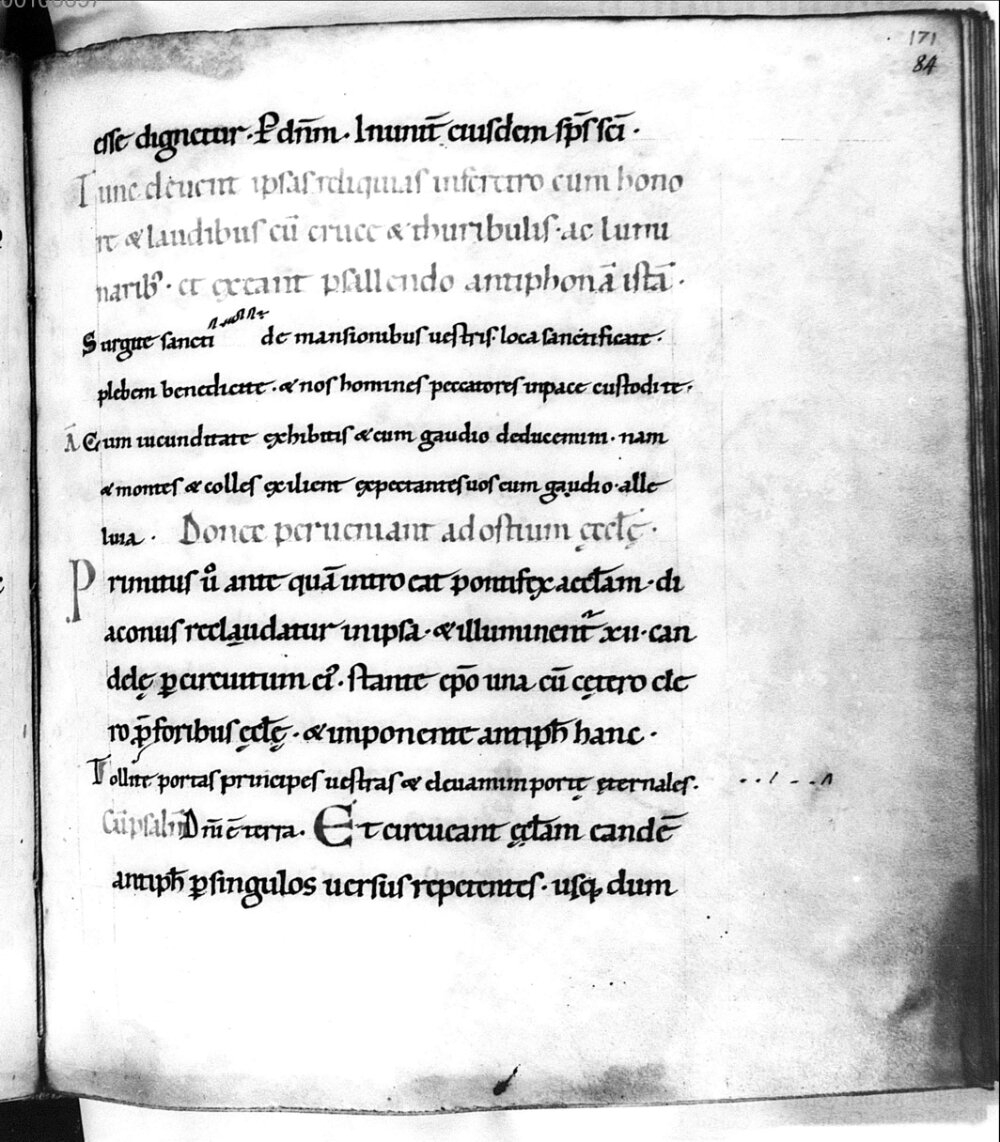 171
84
esse dignetur · P dn̄m · In unit̄ eiusdem sp̄s sc̄i ·
Tunc eleuent ipsas reliquias in feretro cum hono
re & laudibus cū cruce & thuribulis · ac lumi
narib; · et exeant psallendo antiphonā istā ·
Surgite sancti de mansionibus uestris · loca sanctificate ·
plebem benedicite · & nos homines peccatores in pace custodite ·
Ā Cum iucunditate exhibitis & cum gaudio deducemini · nam
& montes & colles exilient expectantes uos cum gaudio · alle
luia · Donec perueniant ad ostium ęcclę ·
Primitus ū ante quā introeat pontifex aeccłam · di
aconus reclaudatur in ipsa · & illuminent̄ xii · can
delę ꝑ circuitum ei · stante ep̄o una cū cętero cle
ro p̄ foribus ęclę · & imponente antiph hanc ·
Tollite portas principes uestras & eleuamini portę ęternales ·
Cū psalm̄ Dn̄i ē terra · Et circueant ęcłam candē
antiph ꝑ singulos uersus repetentes · usq; dum